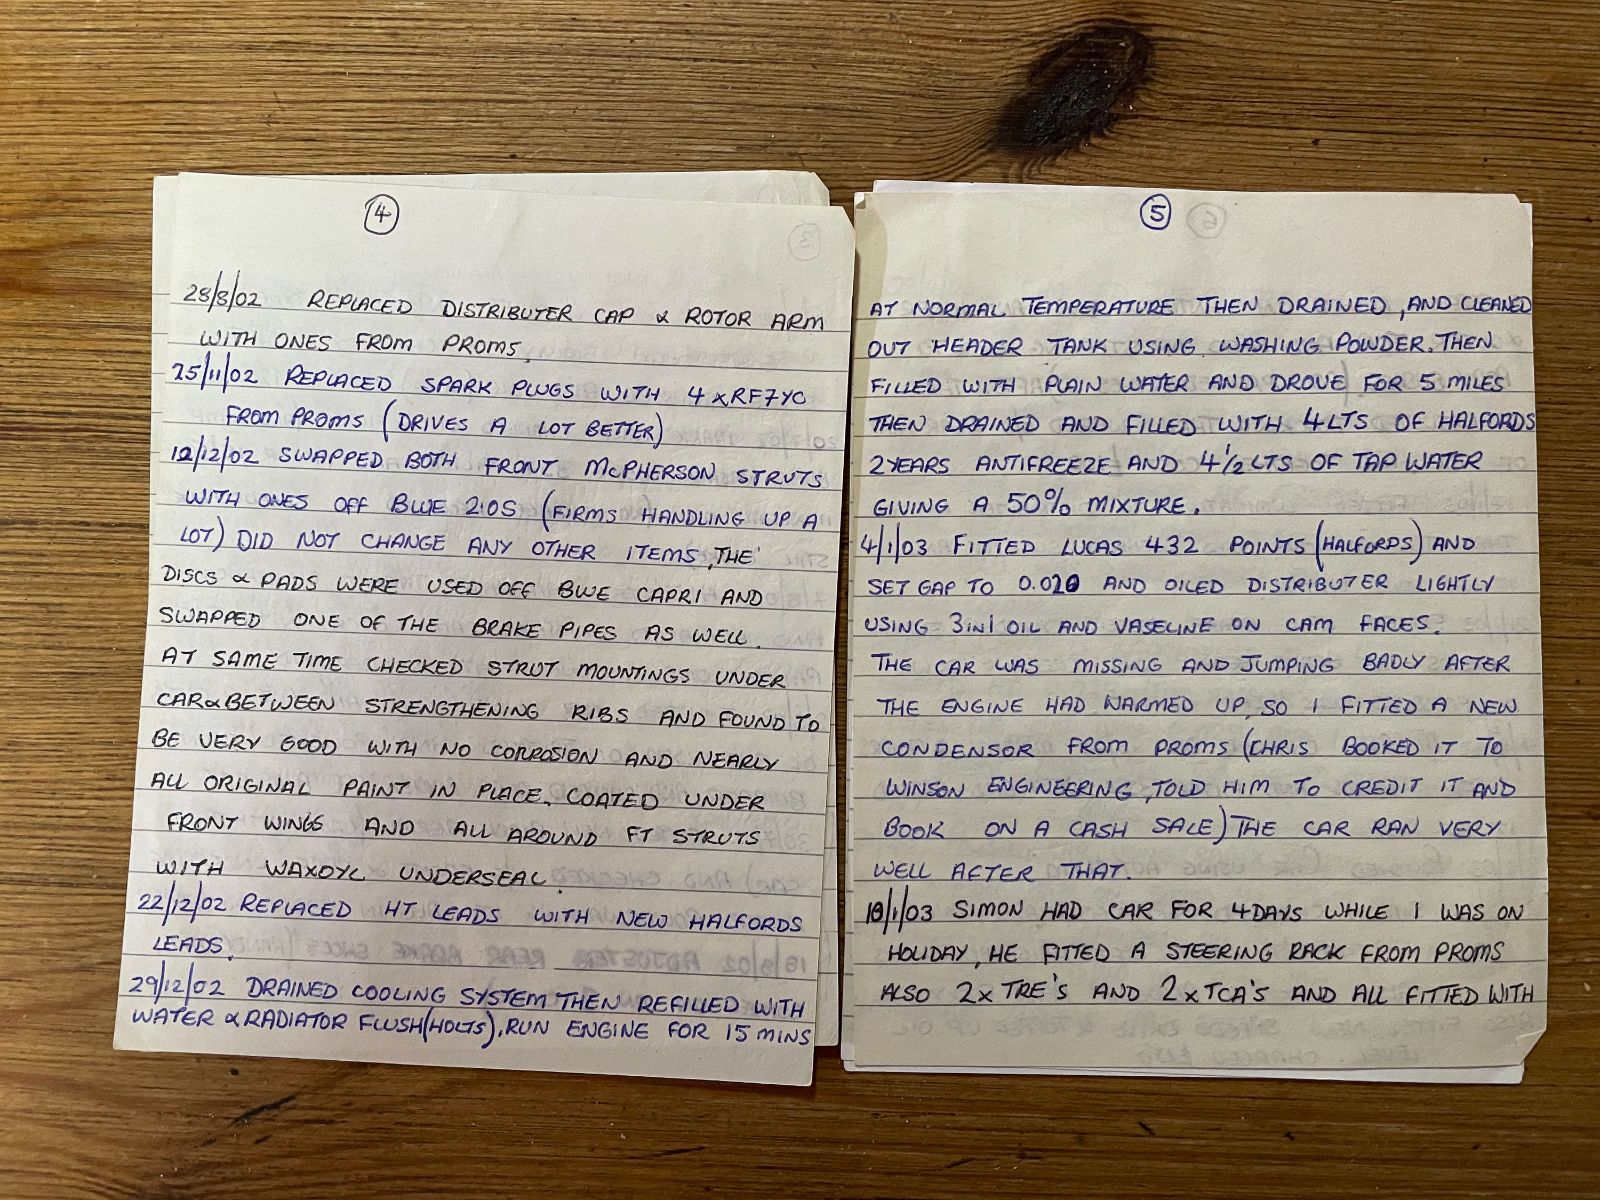 4
28/8/02 REPLACED DISTRIBUTER CAP & ROTOR ARM
WITH ONES FROM PROMS.
25/11/02 REPLACED SPARK PLUGS WITH 4 x RF7YC
FROM PROMS (DRIVES A LOT BETTER)
12/12/02 SWAPPED BOTH FRONT McPHERSON STRUTS
WITH ONES OFF BLUE 2.0S (FIRMS HANDLING UP A
LOT) DID NOT CHANGE ANY OTHER ITEMS, THE
DISCS & PADS WERE USED OFF BLUE CAPRI AND
SWAPPED ONE OF THE BRAKE PIPES AS WELL.
AT SAME TIME CHECKED STRUT MOUNTINGS UNDER
CAR & BETWEEN STRENGTHENING RIBS AND FOUND TO
BE VERY GOOD WITH NO CORROSION AND NEARLY
ALL ORIGINAL PAINT IN PLACE. COATED UNDER
FRONT WINGS AND ALL AROUND FT STRUTS
WITH WAXOYL UNDERSEAL.
22/12/02 REPLACED HT LEADS WITH NEW HALFORDS
LEADS.
29/12/02 DRAINED COOLING SYSTEM THEN REFILLED WITH
WATER & RADIATOR FLUSH (HOLTS). RUN ENGINE FOR 15 MINS
5
AT NORMAL TEMPERATURE THEN DRAINED, AND CLEANED
OUT HEADER TANK USING WASHING POWDER. THEN
FILLED WITH PLAIN WATER AND DROVE FOR 5 MILES
THEN DRAINED AND FILLED WITH 4 LTS OF HALFORDS
2 YEARS ANTIFREEZE AND 4 1/2 LTS OF TAP WATER
GIVING A 50% MIXTURE.
4/1/03 FITTED LUCAS 432 POINTS (HALFORDS) AND
SET GAP TO 0.020 AND OILED DISTRIBUTER LIGHTLY
USING 3in1 OIL AND VASELINE ON CAM FACES.
THE CAR WAS MISSING AND JUMPING BADLY AFTER
THE ENGINE HAD WARMED UP, SO I FITTED A NEW
CONDENSOR FROM PROMS (CHRIS BOOKED IT TO
WINSON ENGINEERING, TOLD HIM TO CREDIT IT AND
BOOK ON A CASH SALE) THE CAR RAN VERY
WELL AFTER THAT.
18/1/03 SIMON HAD CAR FOR 4 DAYS WHILE I WAS ON
HOLIDAY, HE FITTED A STEERING RACK FROM PROMS
ALSO 2 x TRE'S AND 2 x TCA'S AND ALL FITTED WITH